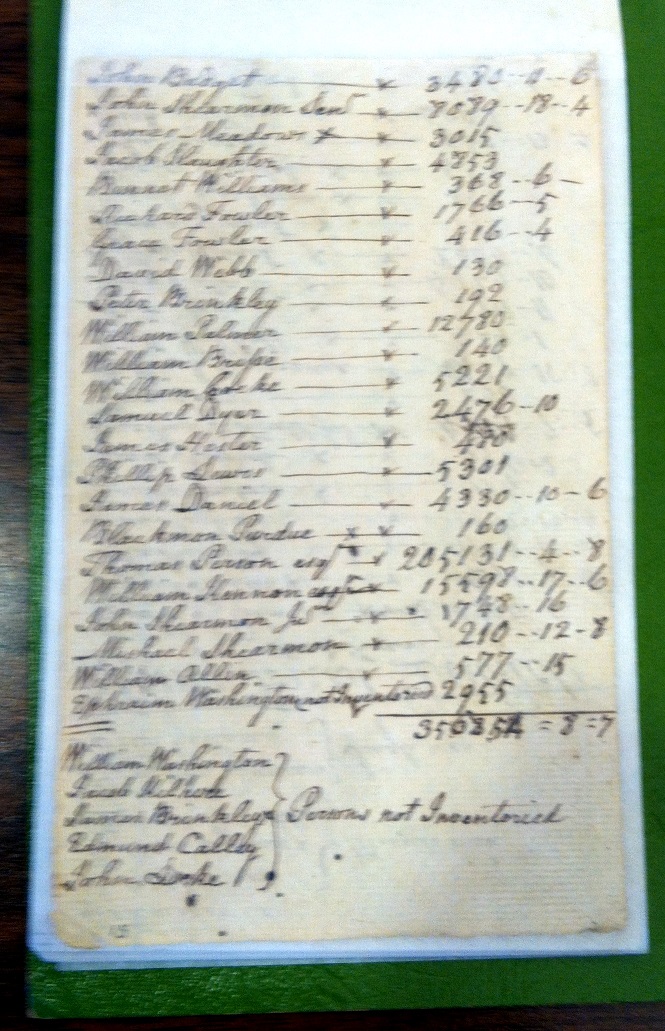 John Bridget x 3480--11--6
John Shearmon Senr x 8089--18--4
James Meadows x 3015
Jacob Slaughter x 4853
Bennat Williams x 368--6--
Richard Fowler x 1766--5
Grace Fowler x 416--4
David Webb x 130
Peter Brinkley x 192
William Palmer x 12780
William x 140
William Cocke x 5221
Samuel Dyer x 2476--10
James Hester x 480
Phillip Lewis x 5301
James Daniel x 4330--10--6
Blackmon Purdue x x 160
Thomas Person esqr x 205131--4--8
William Kennon esqr x 15598--17--6
John Shearmon Jur x 1748--16
Michael Shearmon x 210--12--8
William Allin x 577--15
Ephraim Washington not Inventoried 2955
=8=7
William Washington
Jacob
James Brinkley Persons not Inventoried
Edmund Calley
John